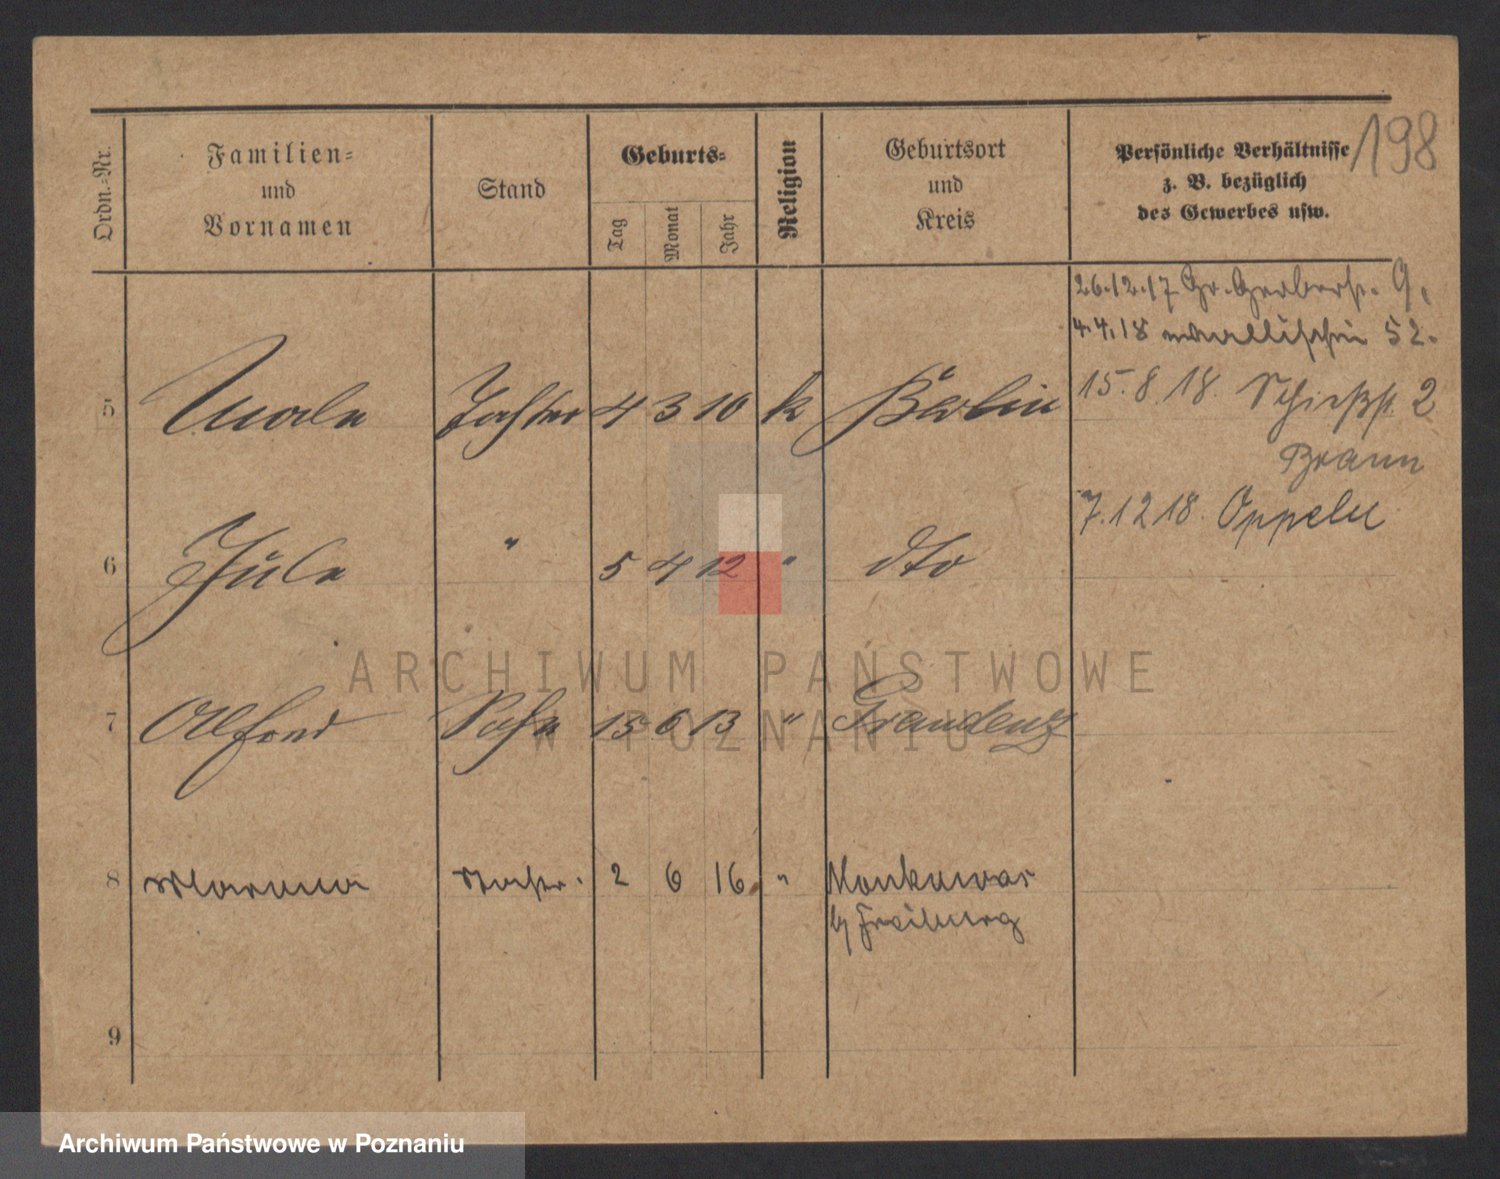 198
Ordn.-Nr.
Familien-
und
Vornamen
Stand
Geburts-
Tag
Monat
Jahr
Religion
Geburtsort
und
Kreis
Persönliche Verhältnisse
z. B. bezüglich
des Gewerbes usw.
26.12.17 Gr. Gerberstr. 9,
4.4.18 wallischei 52.
15.8.18. Schießstr. 2
Braun
7.12 18. Oppeln
5 Tochter 4 3 10 k Berlin
6 " 5 4 12 " dto
7 Alfred Sohn 15 6 13 " Graudenz
8 Tochter. 2 6 16 "
b/ Freiburg
9
ARCHIWUM PAŃSTWOWE
W POZNANIU
Archiwum Państwowe w Poznaniu